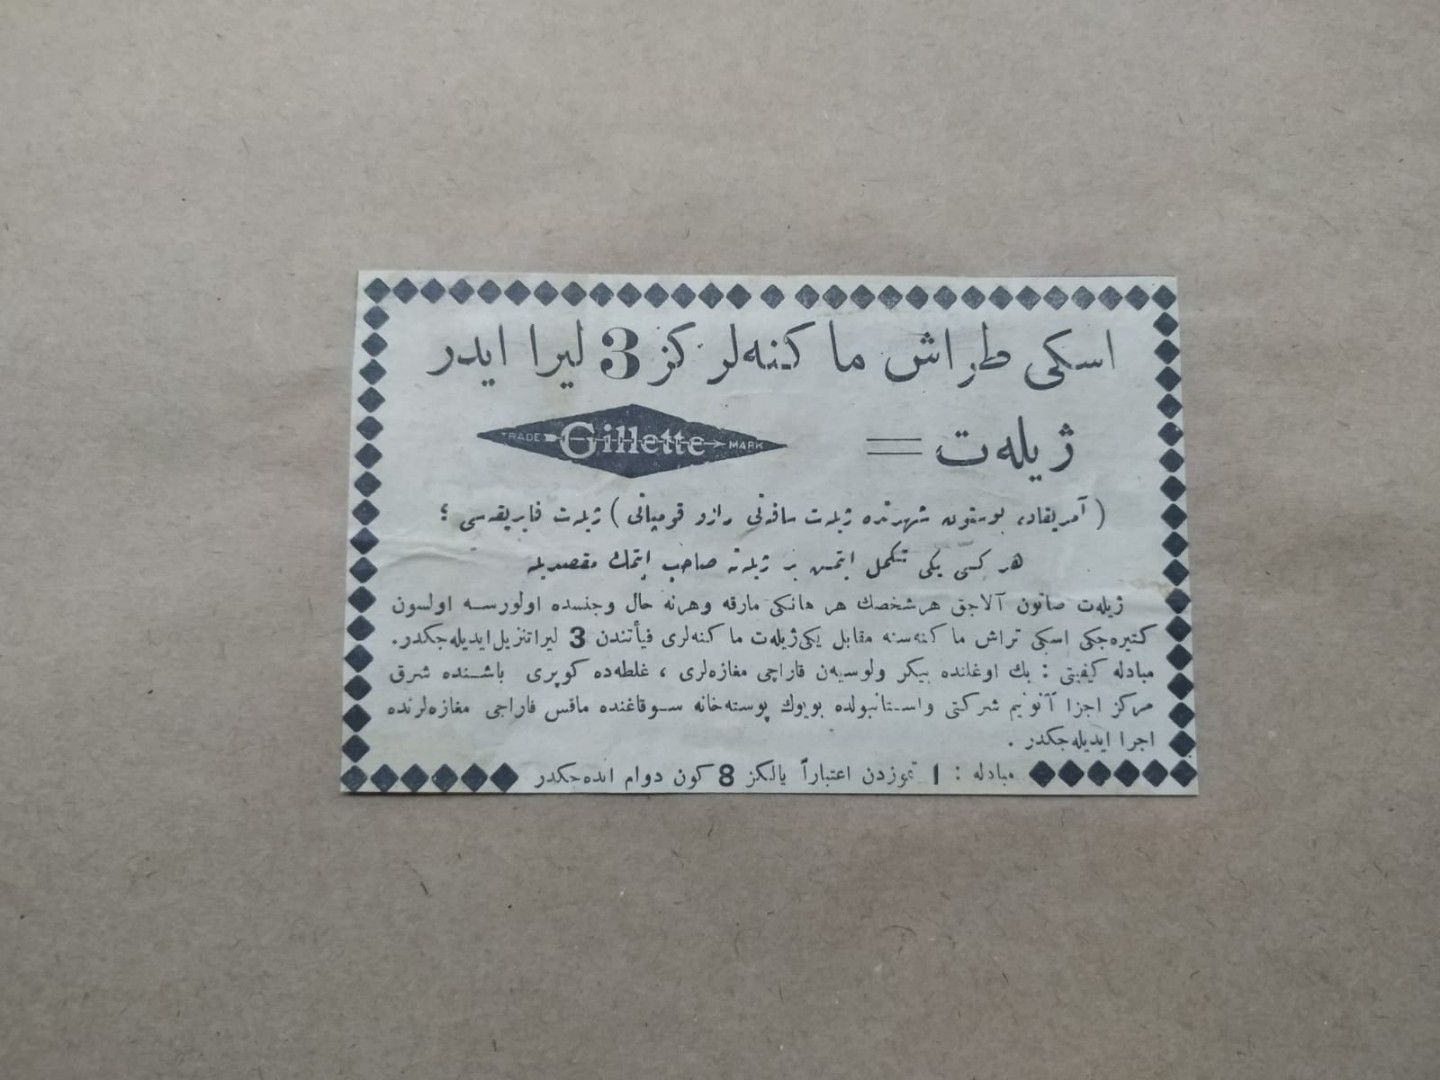 اسكی طراش ماكنه‌لركز 3 ليرا ايدر
ژيله‌ت =
TRADE Gillette MARK
( آمريقاده بوستون شهرنده ژيلەت سافه‌تی رازو قومپانی ) ژيلەت فابريقه‌سی ؛
هر كسی يكی تكمل ايتمش بر ژيلەته صاحب ايتمك مقصديله
ژيلەت صاتون آلاجق هرشخصك هر هانكی مارقه وهرنه حال وجنسده اولورسه اولسون
كتيره‌جكی اسكی تراش ماكنه‌سنه مقابل يكی ژيلەت ماكنه‌لری فيأتندن 3 ليرا تنزيل ايديله‌جكدر.
مبادله كيفيتی : بك اوغلنده بيكر ولوسيه‌ن قاراچی مغازه‌لری ، غلطه‌ده كوپری باشنده شرق
مركز اجزا آنونيم شركتی واستانبولده بويوك پوسته‌خانه سوقاغنده ماقس فاراجی مغازه‌لرنده
اجرا ايديله‌جكدر .
مبادله : 1 تموزدن اعتباراً يالكز 8 كون دوام ايده‌جكدر